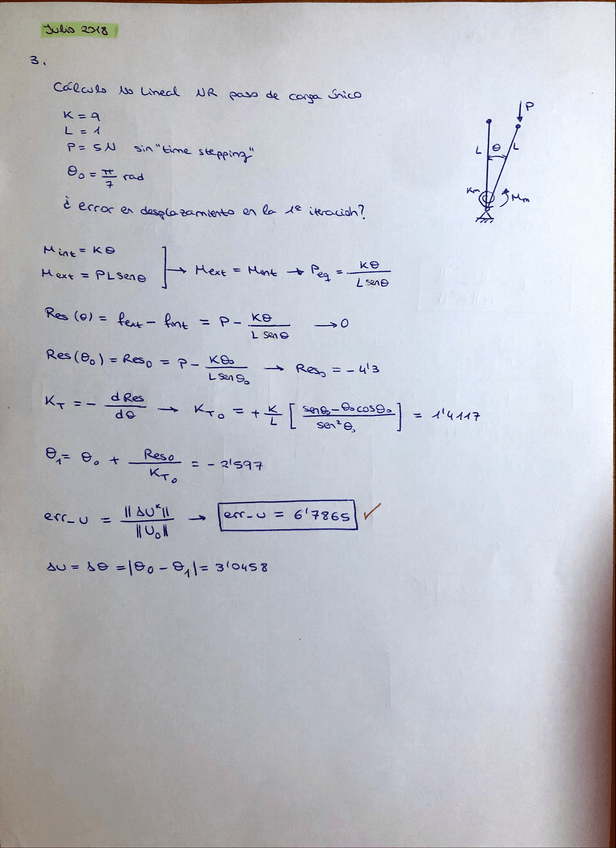 Julio 2018
3.
Cálculo No Lineal NR paso de carga único
K = 9
L = 1
P = 5N sin "time stepping"
θ₀ = π/7 rad
¿ error en desplazamiento en la 1ª iteración?
P
L θ L
Km Mm
Mint = Kθ
Mext = PL senθ
→ Mext = Mint → Peq = Kθ / L senθ
Res(θ) = fext - fint = P - Kθ / L senθ → 0
Res(θ₀) = Res₀ = P - Kθ₀ / L senθ₀ → Res₀ = -4'3
K_T = - dRes / dθ → K_T₀ = + K/L [ senθ₀ - θ₀cosθ₀ / sen²θ₀ ] = 1'4117
θ₁ = θ₀ + Res₀ / K_T₀ = -2'597
err_u = ||ΔUᴷ|| / ||U₀|| → err_u = 6'7865 ✓
ΔU = Δθ = |θ₀ - θ₁| = 3'0458